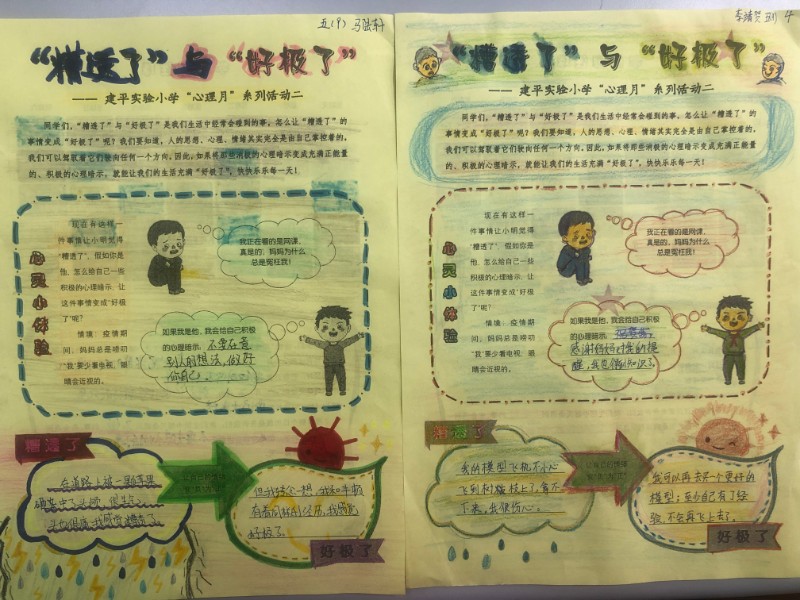 五(9) 马陆轩
“糟透了”与“好极了”
—— 建平实验小学“心理月”系列活动二
同学们,“糟透了”与“好极了”是我们生活中经常会碰到的事,怎么让“糟透了”的
事情变成“好极了”呢?我们要知道,人的思想、心理、情绪其实完全是由自己掌控着的,
我们可以驾驭着它们驶向任何一个方向。因此,如果将那些消极的心理暗示变成充满正能量
的、积极的心理暗示,就能让我们的生活充满“好极了”,快快乐乐每一天!
心灵小体验
现在有这样一
件事情让小明觉得
“糟透了”,假如你是
他,怎么给自己一些
积极的心理暗示,让
这件事情变成“好极
了”呢?
情境:疫情期
间,妈妈总是唠叨
“我要少看电视,眼
睛会近视的。
我正在看的是网课,
真是的,妈妈为什么
总是冤枉我!
如果我是他,我会给自己积极
的心理暗示:不要在意
别人的想法,做好
你自己。
糟透了
在道路上被一颗苹果
但我转念一想,我和牛顿
好极了。
好极了
4
“糟透了”与“好极了”
—— 建平实验小学“心理月”系列活动二
同学们,“糟透了”与“好极了”是我们生活中经常会碰到的事,怎么让“糟透了”的
事情变成“好极了”呢?我们要知道,人的思想、心理、情绪其实完全是由自己掌控着的,
我们可以驾驭着它们驶向任何一个方向。因此,如果将那些消极的心理暗示变成充满正能量
的、积极的心理暗示,就能让我们的生活充满“好极了”,快快乐乐每一天!
心灵小体验
现在有这样一
件事情让小明觉得
“糟透了”,假如你是
他,怎么给自己一些
积极的心理暗示,让
这件事情变成“好极
了”呢?
情境:疫情期
间,妈妈总是唠叨
“我要少看电视,眼
睛会近视的。
我正在看的是网课,
真是的,妈妈为什么
总是冤枉我!
如果我是他,我会给自己积极
的心理暗示:
感谢妈妈对我的提
醒,我
糟透了
我的模型飞机不小心
飞到树枝上了,拿不
下来,我很伤心。
我可以再去买一个更好的
模型;至少自己有了经
验,不会再飞上去了。
好极了